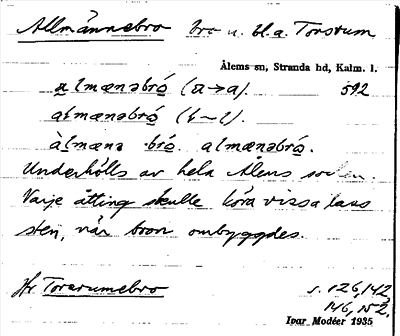 Allmännebro bro n. bl.a. Torstum
Ålems sn, Stranda hd, Kalm. l.
almænəbró (a→a). 592
aɬmænəbró (ɬ~l).
àlmænə bró. almænəbró.
Underhölls av hela Ålems socken.
Varje åtting skulle köra vissa lass
sten, när bron ombyggdes.
Jfr Torsrumebro s. 126, 142,
146, 152,
Ivar Modéer 1935